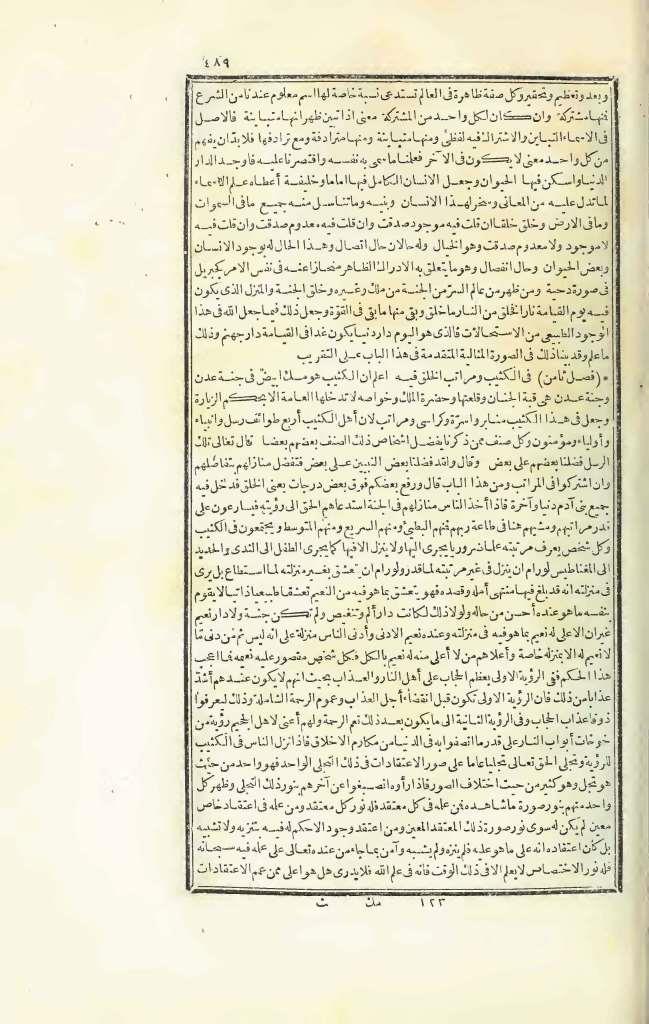 ٤٨٩
وبعد وتعظيم وتحقير وكل صفة ظاهرة فى العالم تستدعى نسبة خاصة لها اسم معلوم عندنا من الشرع
فمنها مشتركة وان كان لكل واحد من المشتركة معنى اذا تبين ظهر انها متباينة فالاصل
فى الاسماء التباين والاشتراك فيه لفظى ومنها متباينة ومنها مترادفة ومع ترادفها فلابد ان يفهم
من كل واحد معنى لا يكون فى الآخر فعلمنا ما سمى به نفسه واقتصرنا عليه فأوجد الدار
الدنيا واسكن فيها الحيوان وجعل الانسان الكامل فيها اماما وخليفة أعطاه علم الاسماء
لما تدل عليه من المعانى وسخر لهذا الانسان وبنيه وما تناسل منه جميع ما فى السموات
وما فى الارض وخلق خلقا ان قلت فيه موجود صدقت وان قلت فيه معدوم صدقت وان قلت فيه
لا موجود ولا معدوم صدقت وهو الخيال وله حالان حال اتصال وهذا الحال له بوجود الانسان
وبعض الحيوان وحال انفصال وهو ما يتعلق به الادراك الظاهر منحازا عنه فى نفس الامر كجبريل
فى صورة دحية ومن ظهر من عالم الستر من الجنة من ملك وغيره وخلق الجنة والمنزل الذى يكون
فيه يوم القيامة نارا فخلق من النار ما خلق وبقى منها ما بقى فى القوة وجعل ذلك فيما جعل الله فى هذا
الوجود الطبيعى من الاستحالات فالذى هو اليوم دار دنيا يكون غدا فى القيامة دار جهنم وذلك
ما علم وقد بينا ذلك فى الصورة المثالية المتقدمة فى هذا الباب على التقريب
* (فصل ثامن) فى الكثيب ومراتب الخلق فيه اعلم ان الكثيب هو مسك ابيض فى جنة عدن
وجنة عدن هى قبة الجنان وقلعتها وحضرة الملك وخواصه لا تدخلها العامة الا بحكم الزيارة
وجعل فى هذا الكثيب منابر واسرة وكراسى ومراتب لان أهل الكثيب أربع طوائف رسل وانبياء
وأولياء ومؤمنون وكل صنف ممن ذكرنا يفضل اشخاص ذلك الصنف بعضهم بعضا قال تعالى تلك
الرسل فضلنا بعضهم على بعض وقال ولقد فضلنا بعض النبيين على بعض فتفضل منازلهم بتفاضلهم
وان اشتركوا فى المراتب ومن هذا الباب قال ورفع بعضكم فوق بعض درجات يعنى الخلق فدخل فيه
جميع بنى آدم دنيا وآخرة فاذا أخذ الناس منازلهم فى الجنة استدعاهم الحق الى رؤيته فيسارعون على
قدر مراتبهم ومشيهم هنا فى طاعة ربهم فنهم البطىء ومنهم السريع ومنهم المتوسط ويجتمعون فى الكثيب
وكل شخص يعرف مرتبته علما ضروريا يجرى اليها ولا ينزل الا فيها كما يجرى الطفل الى الثدى والحديد
الى المغناطيس لو رام ان ينزل فى غير مرتبته لما قدر ولو رام ان يتعشق بغير منزلته لما استطاع بل يرى
فى منزلته انه قد بلغ فيها منتهى أمله وقصده فهو يتعشق بما هو فيه من النعيم تعشقا طبيعيا ذاتيا لا يقوم
بنفسه ما هو عنده أحسن من حاله ولولا ذلك لكانت دار ألم وتنغيص ولم تكن جنة ولا دار نعيم
غير ان الاعلى له نعيم بما هو فيه فى منزلته وعنده نعيم الادنى وأدنى الناس منزلة على انه ليس ثم من دنى من
لا نعيم له الا بمنزله خاصة وأعلاهم من لا أعلى منه له نعيم بالكل فكل شخص مقصور عليه نعيمه فما اعجب
هذا الحكم فى الرؤية الاولى يعظم الحجاب على أهل النار والعذاب بحيث انهم لا يكون عندهم أشد
عذابا من ذلك فان الرؤية الاولى تكون قبل انقضاء أجل العذاب وعموم الرحمة الشاملة وذلك ليعرفوا
ذوقا عذاب الحجاب وفى الرؤية الثانية الى ما يكون بعد ذلك تعم الرحمة ولهم أعنى لاهل الجحيم رؤية من
خوخات أبواب النار على قدر ما اتصفوا به فى الدنيا من مكارم الاخلاق فاذا نزل الناس فى الكثيب
للرؤية وتجلى الحق تعالى تجليا عاما على صور الاعتقادات فى ذلك التجلى الواحد فهو واحد من حيث
هو تجل وهو كثير من حيث اختلاف الصور فاذا رأوه انصبغوا عن آخرهم بنور ذلك التجلى وظهر كل
واحد منهم بنور صورة ما شاهده فمن علمه فى كل معتقد فله نور كل معتقد ومن علمه فى اعتقاد خاص
معين لم يكن له سوى نور صورة ذلك المعتقد المعين ومن اعتقد وجود الا حكم له فيه بتنزيه ولا تشبيه
بل كان اعتقاده انه على ما هو عليه فلم ينزه ولم يشبه وآمن بما جاء من عنده تعالى على علمه فيه سبحانه
فله نور الاختصاص لا يعلم الا فى ذلك الوقت فانه فى علم الله فلا يدرى هل هو اعلى ممن عمم الاعتقادات
١٢٣ مك ث